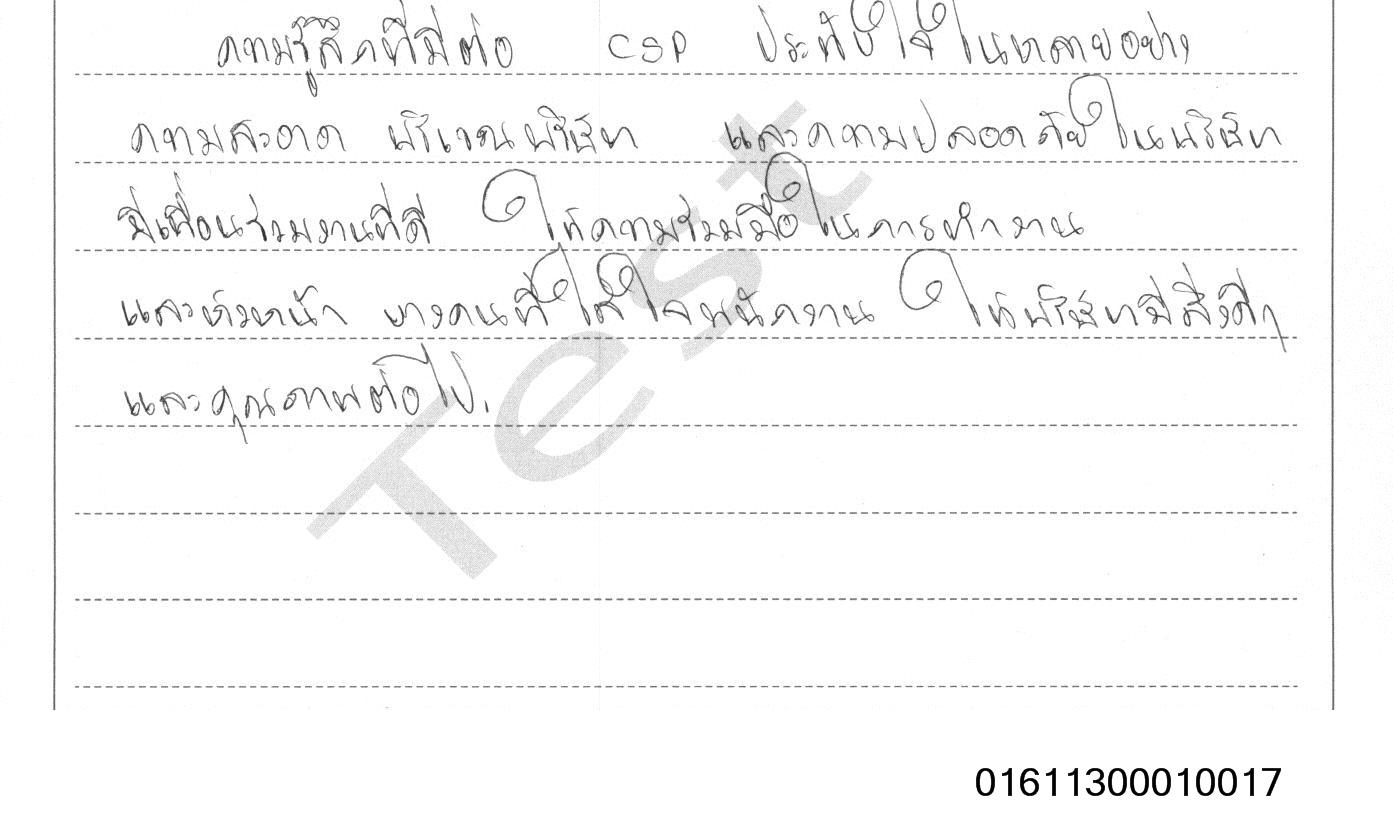 ความรู้สึกที่มีต่อ CSP ประทับใจในหลายอย่าง
ความสะอาด บริเวณบริษัท และความปลอดภัยในบริษัท
มีเพื่อนร่วมงานที่ดี ให้ความร่วมมือในการทำงาน
และหัวหน้า บางคนที่ใส่ใจพนักงาน ให้บริษัทมีสิ่งดีๆ
และคุณภาพต่อไป.
Test
01611300010017